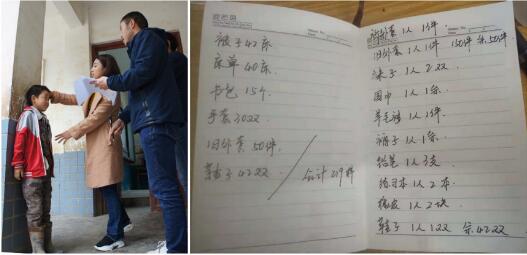 被子42床
床单40床
书包15个
手套30双
旧外套50件
鞋子42双
合计219件
旧外套1人1件
袜子1人2双
围巾1人1条
羊毛裤1人1件
裤子1人1条
铅笔1人3支
练习本1人2本
橡皮1人2块
鞋子1人1双 余42双